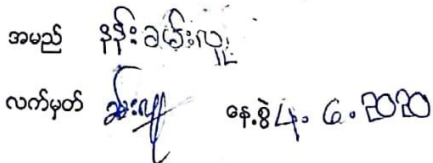 အမည် နန်းခမ်းလှူ
လက်မှတ် နေ့စွဲ 4. 6. 2020